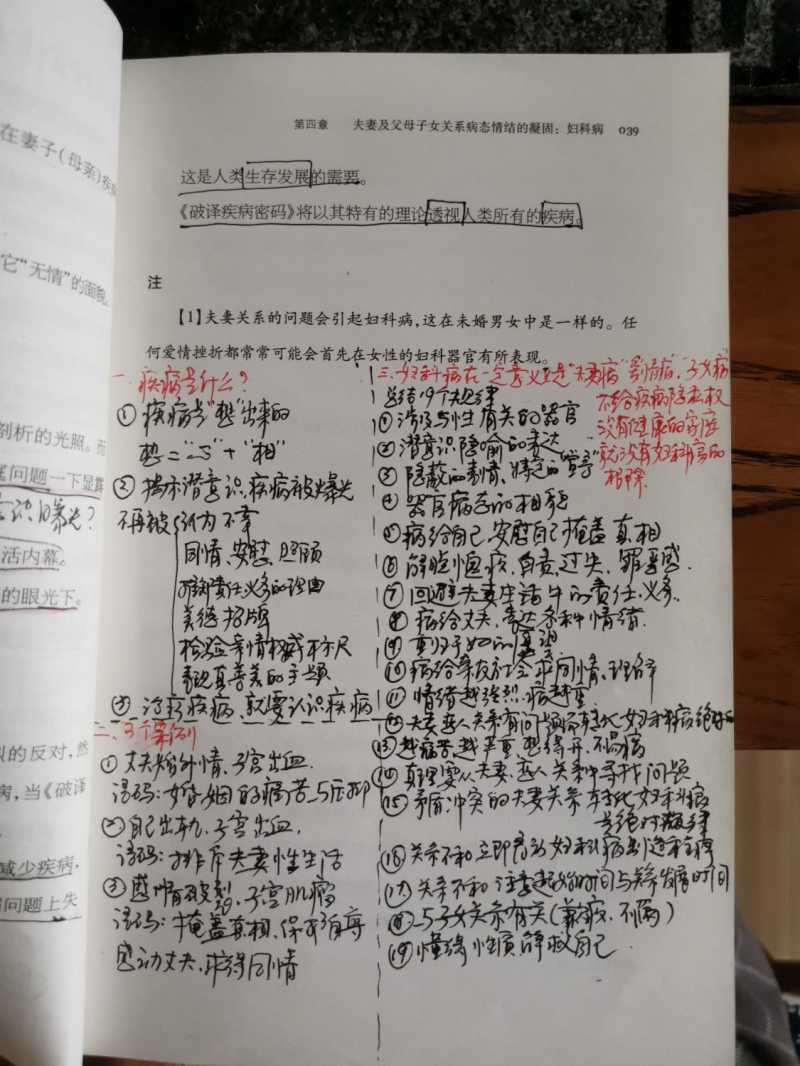 在妻子(母亲)
它“无情”的面貌。
剖析的光照。而
问题一下显露
识曝光?
活内幕。
的眼光下。
的反对,然
病,当《破译
减少疾病,
问题上失
第四章 夫妻及父母子女关系病态情结的凝固:妇科病 039
这是人类生存发展的需要。
《破译疾病密码》将以其特有的理论透视人类所有的疾病。
注
【1】夫妻关系的问题会引起妇科病,这在未婚男女中是一样的。任
何爱情挫折都常常可能会首先在女性的妇科器官有所表现。
一、疾病是什么?
①疾病是“想”出来的
想=“心”+“相”
②揭示潜意识,疾病被曝光
不再被 认为不幸
同情、安慰、照顾
推卸责任义务的理由
美丽招牌
检验亲情权威标尺
表现真善美的手段
③治疗疾病,就要认识疾病
二、3个案例
①丈夫婚外情、子宫出血
译码:婚姻的痛苦与压抑
②自己出轨,子宫出血,
译码:排斥夫妻性生活
③感情破裂,子宫肌瘤
译码:掩盖真相、保
感动丈夫,求得同情
三、妇科病在一定意义上是“夫妻病”“爱情病”、子女病
不给疾病隐私权
没有健康的家庭
就没有妇科病的
根除
总结19个规律
①涉及与性有关的器官
②潜意识隐喻的表达
③隐蔽的表情、特定的“宣言”
④器官病态的相貌
⑤病给自己,安慰自己掩盖真相
⑥解脱恒疚,自责,过失,罪恶感.
⑦回避夫妻生活中的责任、义务.
⑧病给丈夫,表达各种情绪.
⑨重归于好的愿望
⑩病给亲友社会求同情、理解
⑪情绪越强烈、病越重
⑫夫妻恋人关系有问题而转化妇科病绝对
⑬越痛苦越严重,想得开,不易病
⑭真理要从夫妻、恋人关系中寻找问题
⑮矛盾冲突的夫妻关系转化妇科病
是绝对规律
⑯关系不和立即启动妇科病制造程序
⑰关系不和注意起始时间与疾病发病时间
⑱与子女关系有关(兼
⑲懂得性质解救自己.